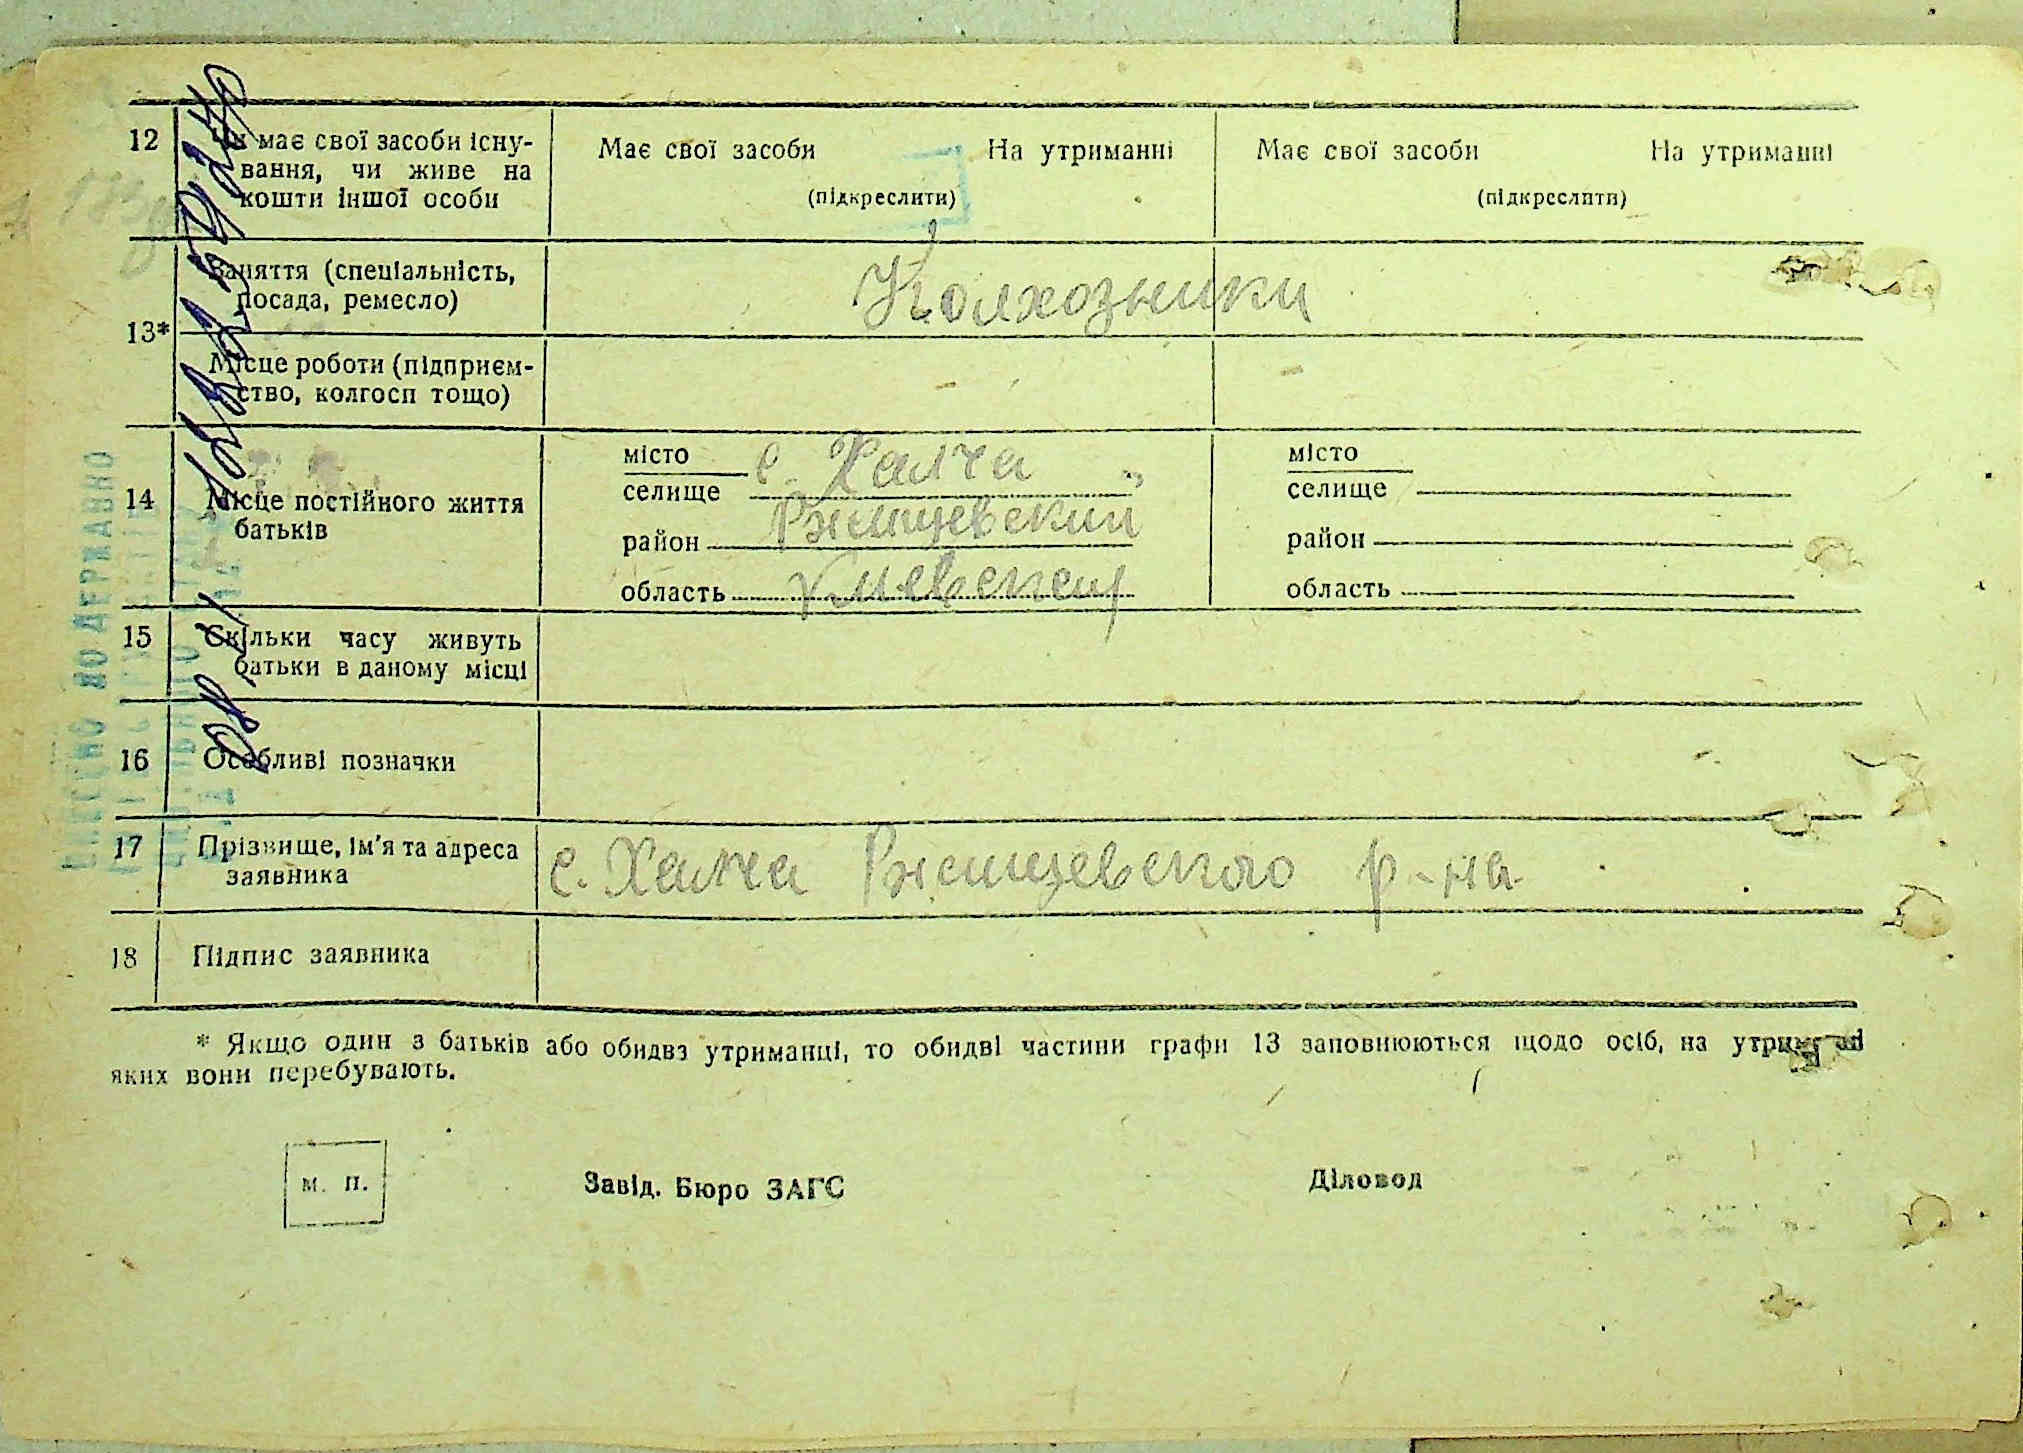 12
Чи має свої засоби існу-
вання, чи живе на
кошти іншої особи
Має свої засоби На утриманні
(підкреслити)
Має свої засоби На утриманні
(підкреслити)
13*
Заняття (спеціальність,
посада, ремесло)
Колхозники
Місце роботи (підприєм-
ство, колгосп тощо)
14
Місце постійного життя
батьків
місто
селище
с. Халча
район Ржищевский
область Киевской
місто
селище
район
область
15
Скільки часу живуть
батьки в даному місці
16
Особливі позначки
17
Прізвище, ім'я та адреса
заявника
с. Халча Ржищевского р-на
18
Підпис заявника
* Якщо один з батьків або обидвз утриманці, то обидві частини графи 13 заповнюються щодо осіб, на утриманні
яких вони перебувають.
м. п.
Завід. Бюро ЗАГС
Діловод